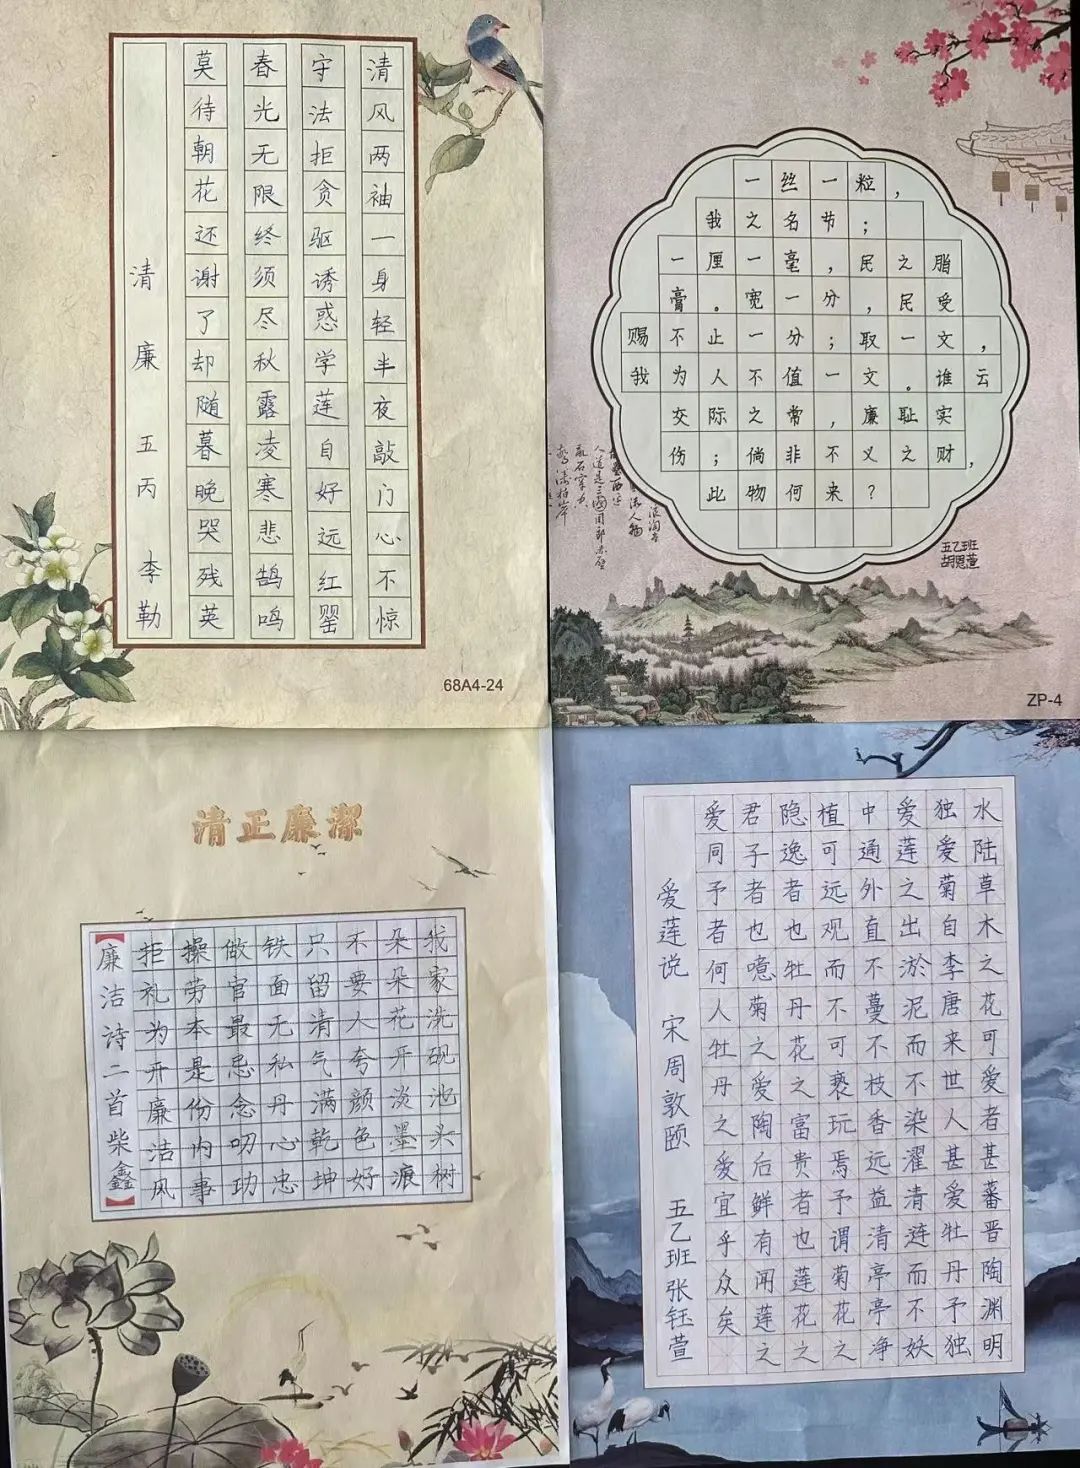 清风两袖一身轻半夜敲门心不惊
守法拒贪驱诱惑学莲自好远红罂
春光无限终须尽秋露凌寒悲鹄鸣
莫待朝花还谢了却随暮晚哭残英
清廉 五丙 李勒
68A4-24
一丝一粒，
我之名节；
一厘一毫，民之脂
膏。宽一分，民受
赐不止一分；取一文，
我为人不值一文。谁云
交际之常，廉耻实
伤；倘非不义之财，
此物何来？
五乙班
胡恩萱
ZP-4
清正廉潔
我家洗砚池头树
朵朵花开淡墨痕
不要人夸颜色好
只留清气满乾坤
铁面无私丹心忠
做官最忌念叨功
操劳本是份内事
拒礼为开廉洁风
【廉洁诗二首柴鑫】
水陆草木之花可爱者甚蕃晋陶渊明
独爱菊自李唐来世人甚爱牡丹予独
爱莲之出淤泥而不染濯清涟而不妖
中通外直不蔓不枝香远益清亭亭净
植可远观而不可亵玩焉予谓菊花之
隐逸者也牡丹花之富贵者也莲花之
君子者也噫菊之爱陶后鲜有闻莲之
爱同予者何人牡丹之爱宜乎众矣
爱莲说 宋周敦颐 五乙班张钰萱